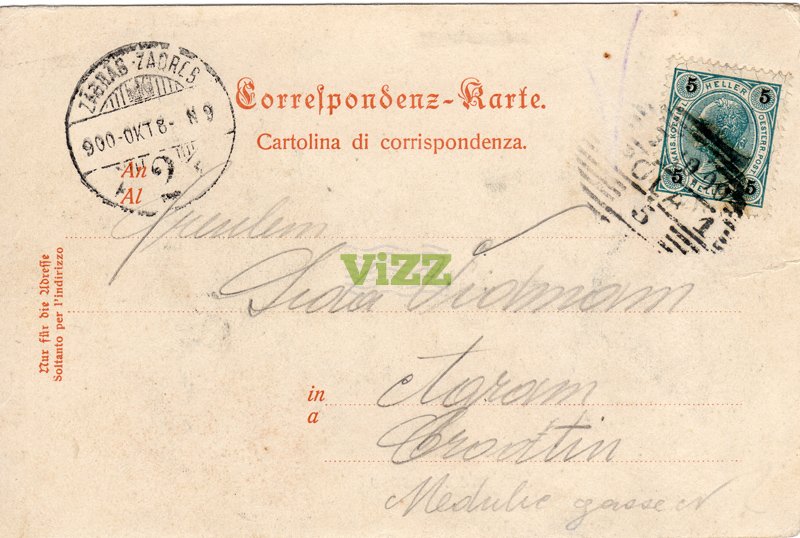 ZÁGRÁB-ZAGREB
900·OKT 8- N 9
Correſpondenz-Karte.
Cartolina di corrispondenza.
5 HELLER 5
KAIS.KOENIGL. OESTERR.POST
5 HELLER 5
An
Al
Fräulein
Vizz
Widmann
Nur für die Adreſſe
Soltanto per l'indirizzo
in
a
Agram
Croatien
Medulic gasse